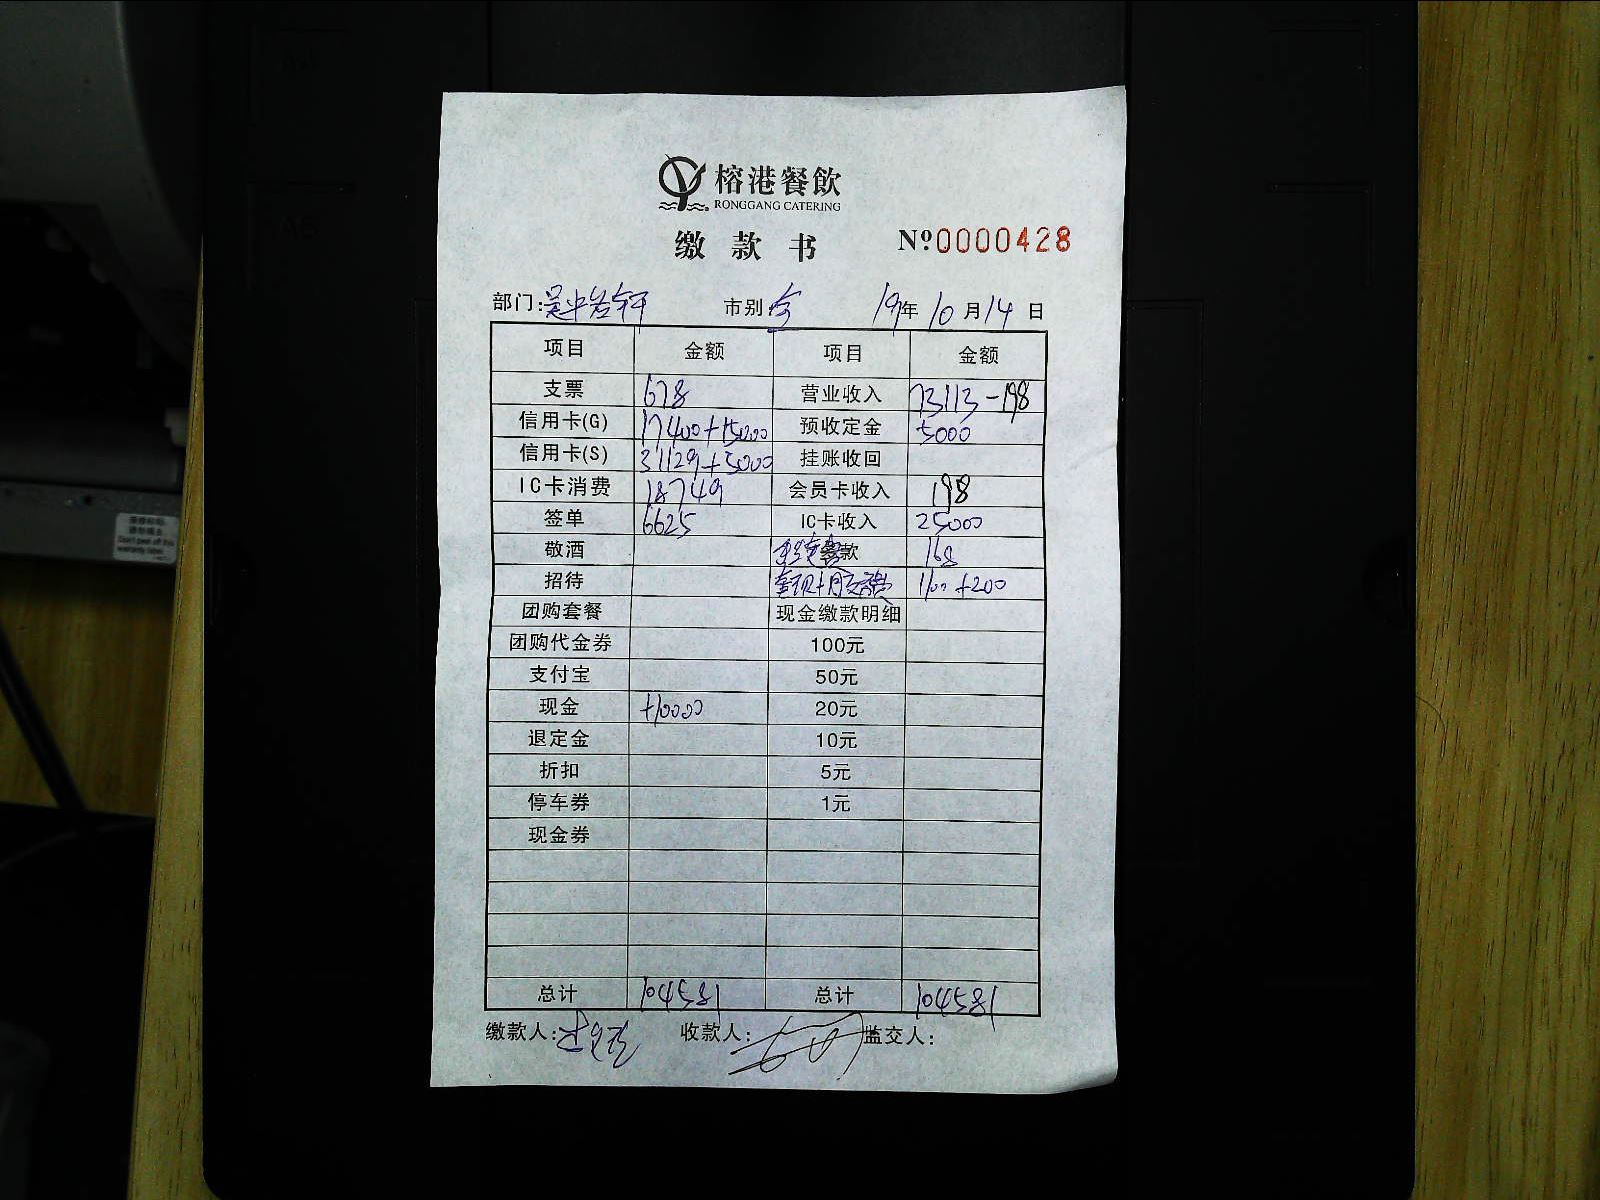 榕港餐飲
RONGGANG CATERING
缴款书 Nº0000428
部门: 市别 19年10月14日
项目 金额 项目 金额
支票 678 营业收入 73113-198
信用卡(G) 17400+15000 预收定金 5000
信用卡(S) 31129+5000 挂账收回
IC卡消费 18749 会员卡收入 198
签单 6625 IC卡收入 25000
敬酒 款 168
招待 1100+200
团购套餐 现金缴款明细
团购代金券 100元
支付宝 50元
现金 +10000 20元
退定金 10元
折扣 5元
停车券 1元
现金券
总计 104581 总计 104581
缴款人: 收款人: 监交人: